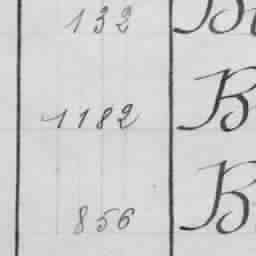 132 B
1182 B
856 B